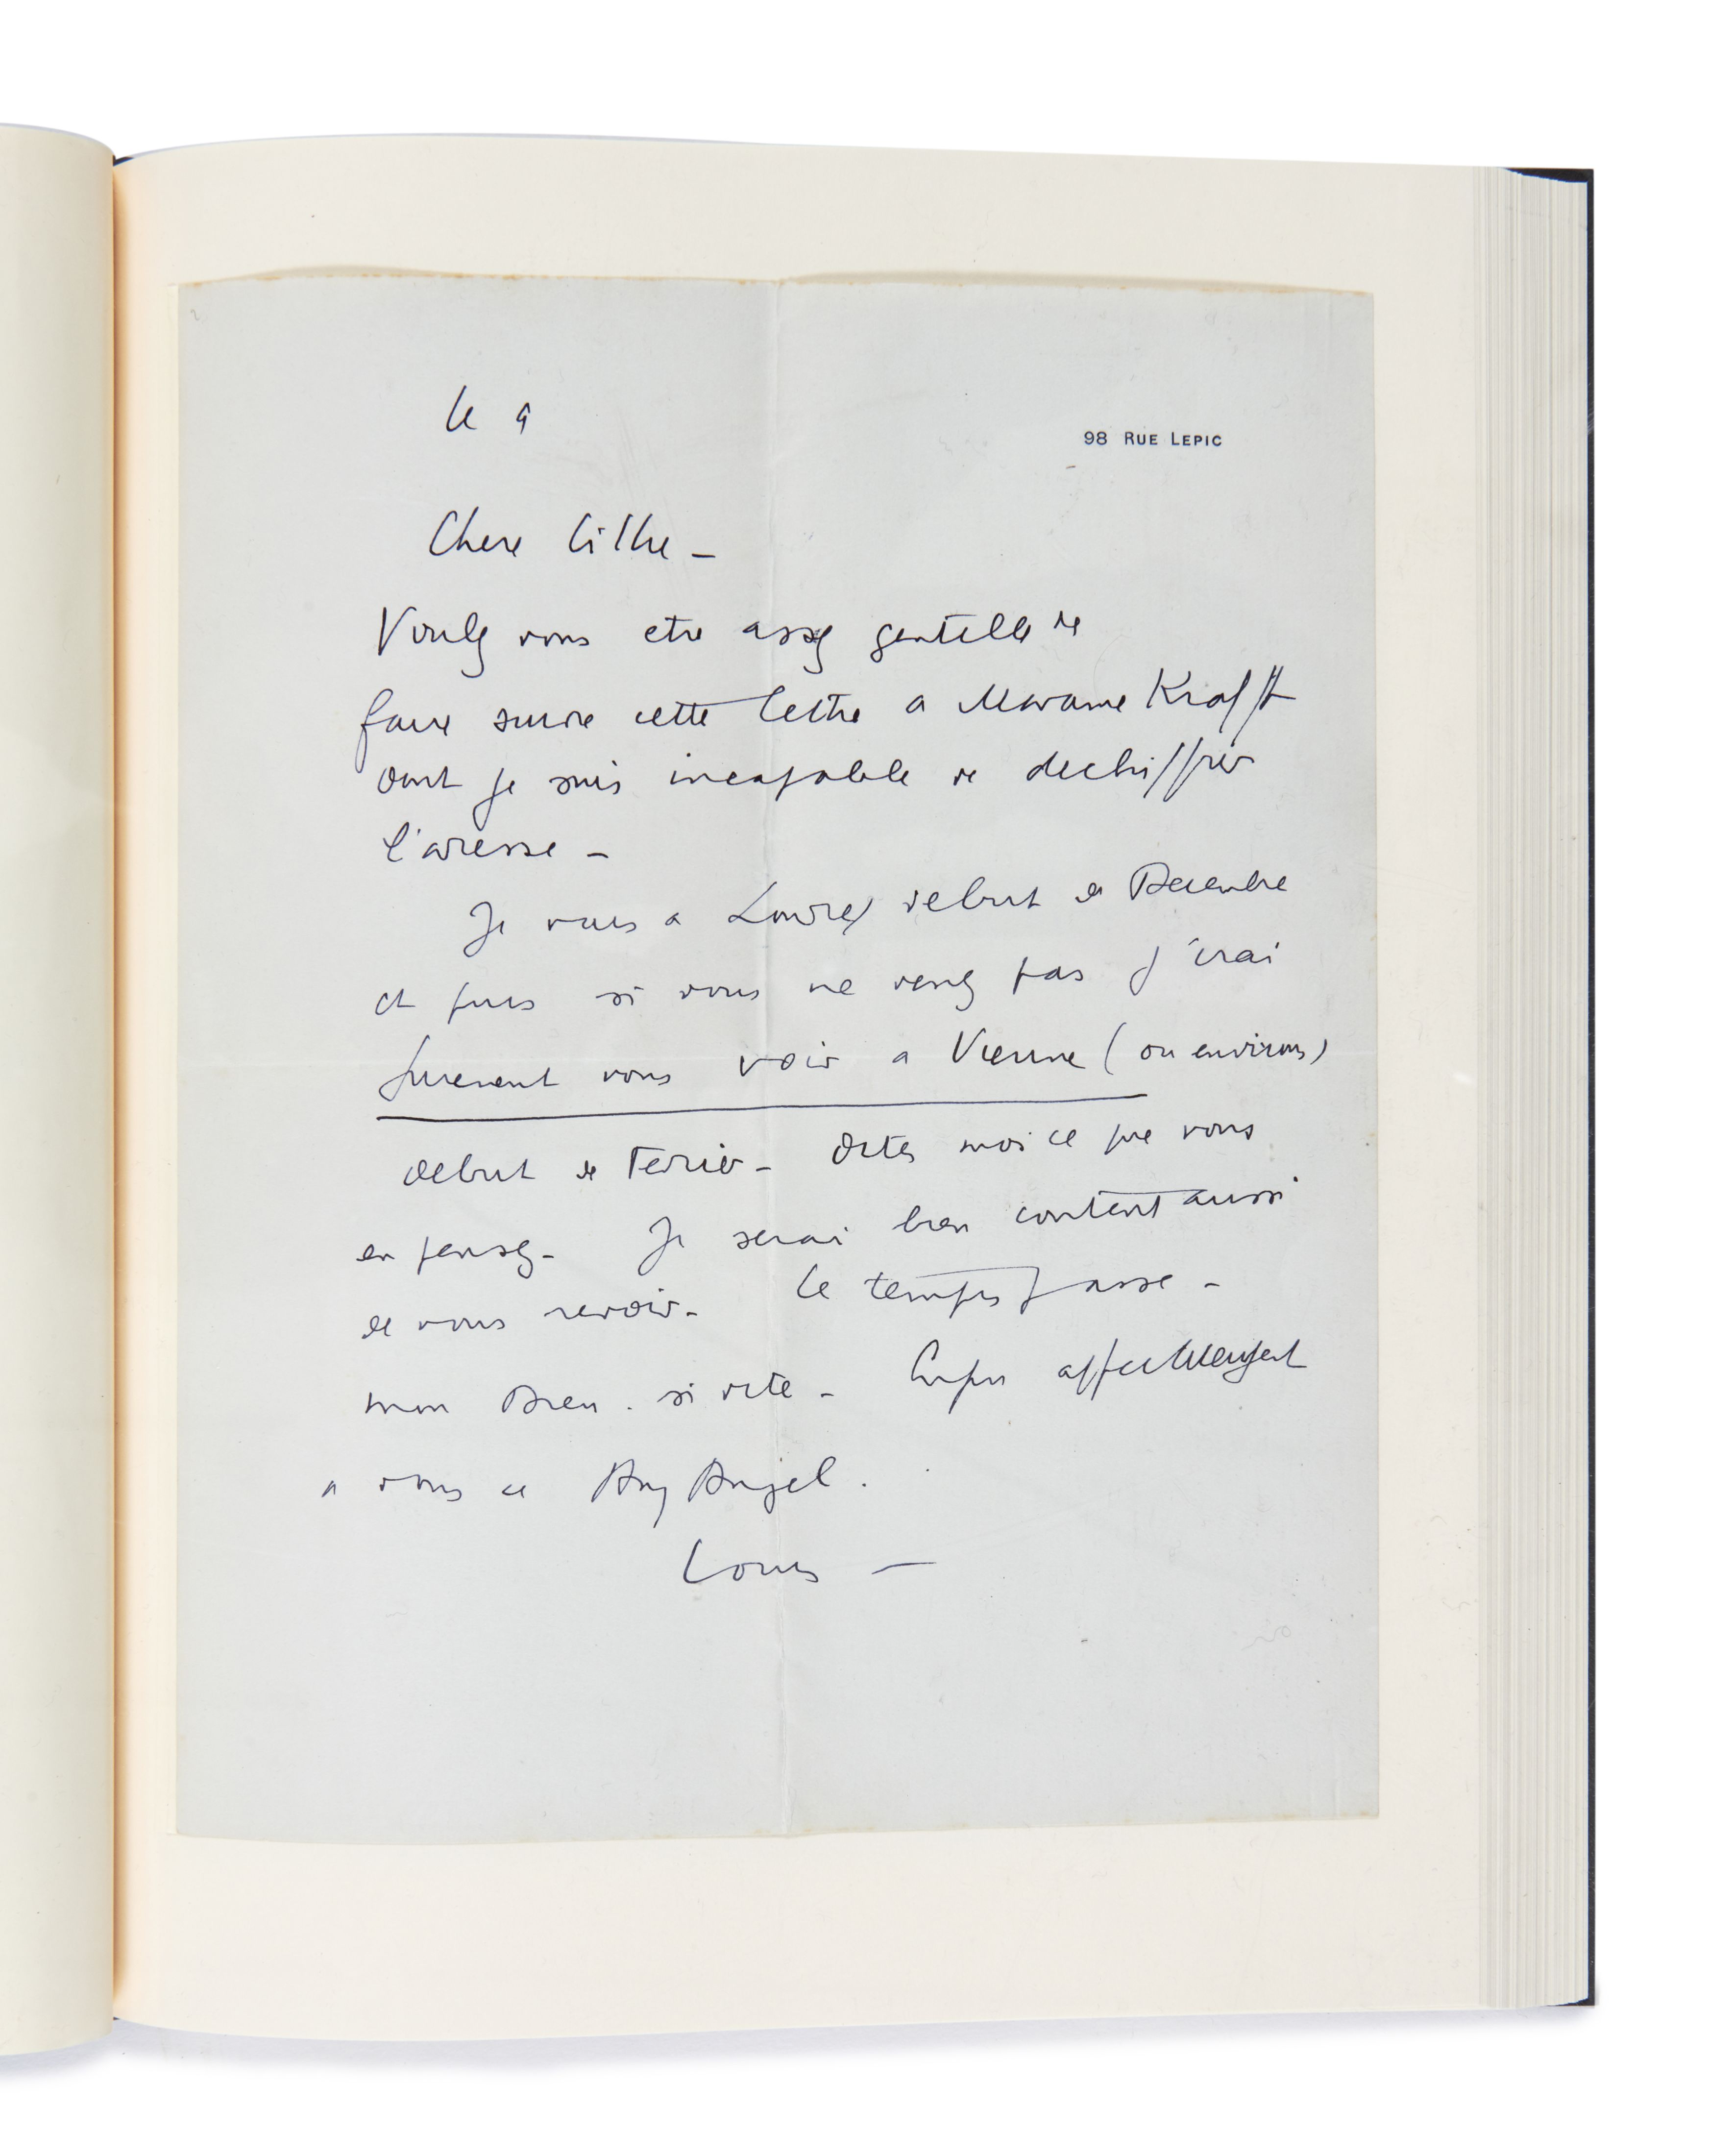 le 9
98 RUE LEPIC
Chere Cillie –
Voulez vous etre assez gentille de
faire suivre cette lettre a Madame Krafft
dont je suis incapable de dechiffrer
l'adresse –
Je vais a Londres debut de Decembre
et puis si vous ne venez pas j'irai
surement vous voir a Vienne (ou environs)
debut de Fevrier – Dites moi ce que vous
en pensez – Je serai bien content aussi
de vous revoir – Le temps passe –
mon Dieu . si vite – affectueusement
a vous
Louis –